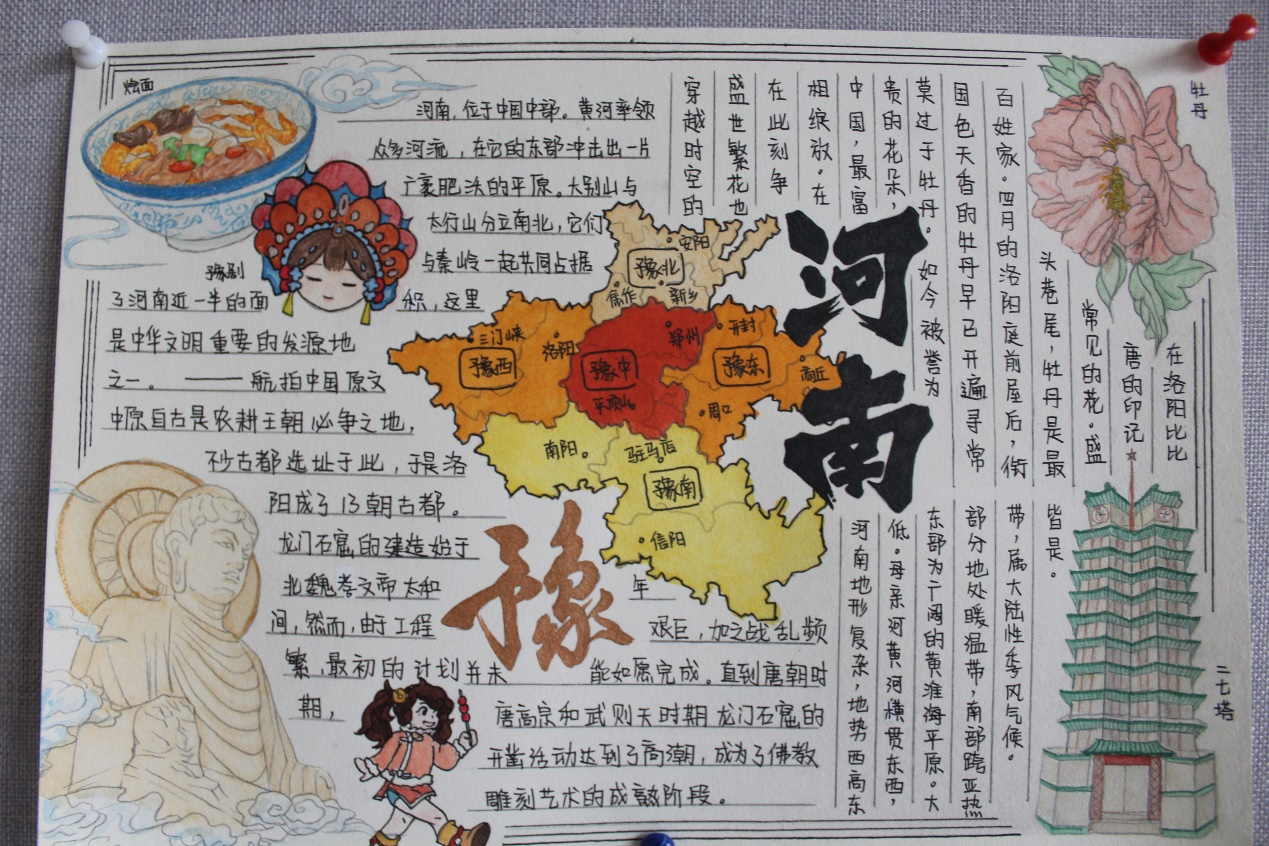 烩面
河南,位于中国中部。黄河率领
众多河流,在它的东部冲击出一片
广袤肥沃的平原。大别山与
太行山分立南北,它们
与秦岭一起共同占据
豫剧
了河南近一半的面积,这里
是中华文明重要的发源地
之一。——航拍中国原文
中原自古是农耕王朝必争之地,
不少古都选址于此,于是洛
阳成了13朝古都。
龙门石窟的建造始于
北魏孝文帝太和年
间,然而,由于工程艰巨,加之战乱频
繁,最初的计划并未能如愿完成。直到唐朝时
期,唐高宗和武则天时期龙门石窟的
开凿活动达到了高潮,成为了佛教
雕刻艺术的成熟阶段。
豫北
安阳
焦作
新乡
三门峡
洛阳
豫西
豫中
郑州
平顶山
开封
豫东
商丘
周口
南阳
驻马店
豫南
信阳
豫
河南
穿越时空的
盛世繁花也
在此刻争
相缤放。在
中国,最富
贵的花朵,
莫过于牡丹。如今被誉为
国色天香的牡丹早已开遍寻常
百姓家。四月的洛阳庭前屋后,街
头巷尾,牡丹是最
常见的花。盛
唐的印记
在洛阳比比
皆是。
牡丹
河南地形复杂,地势西高东
低。母亲河黄河横贯东西,
东部为广阔的黄淮海平原。大
部分地处暖温带,南部跨亚热
带,属大陆性季风气候。
二七塔